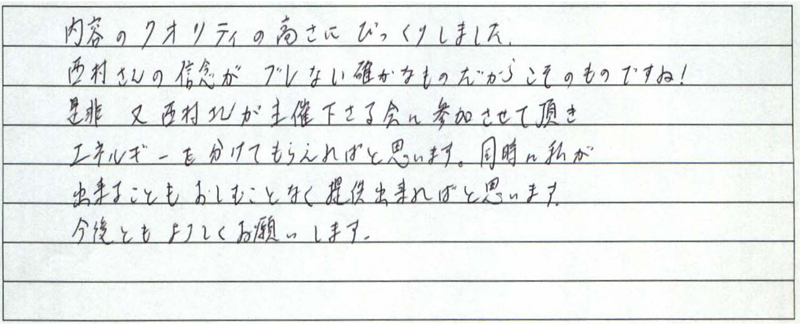 内容のクオリティの高さにびっくりしました。
西村さんの信念がブレない確かなものだからこそのものですね!
是非 又 西村さんが主催下さる会に参加させて頂き
エネルギーを分けてもらえればと思います。同時に私が
出来ることもおしむことなく提供出来ればと思います。
今後ともよろしくお願いします。